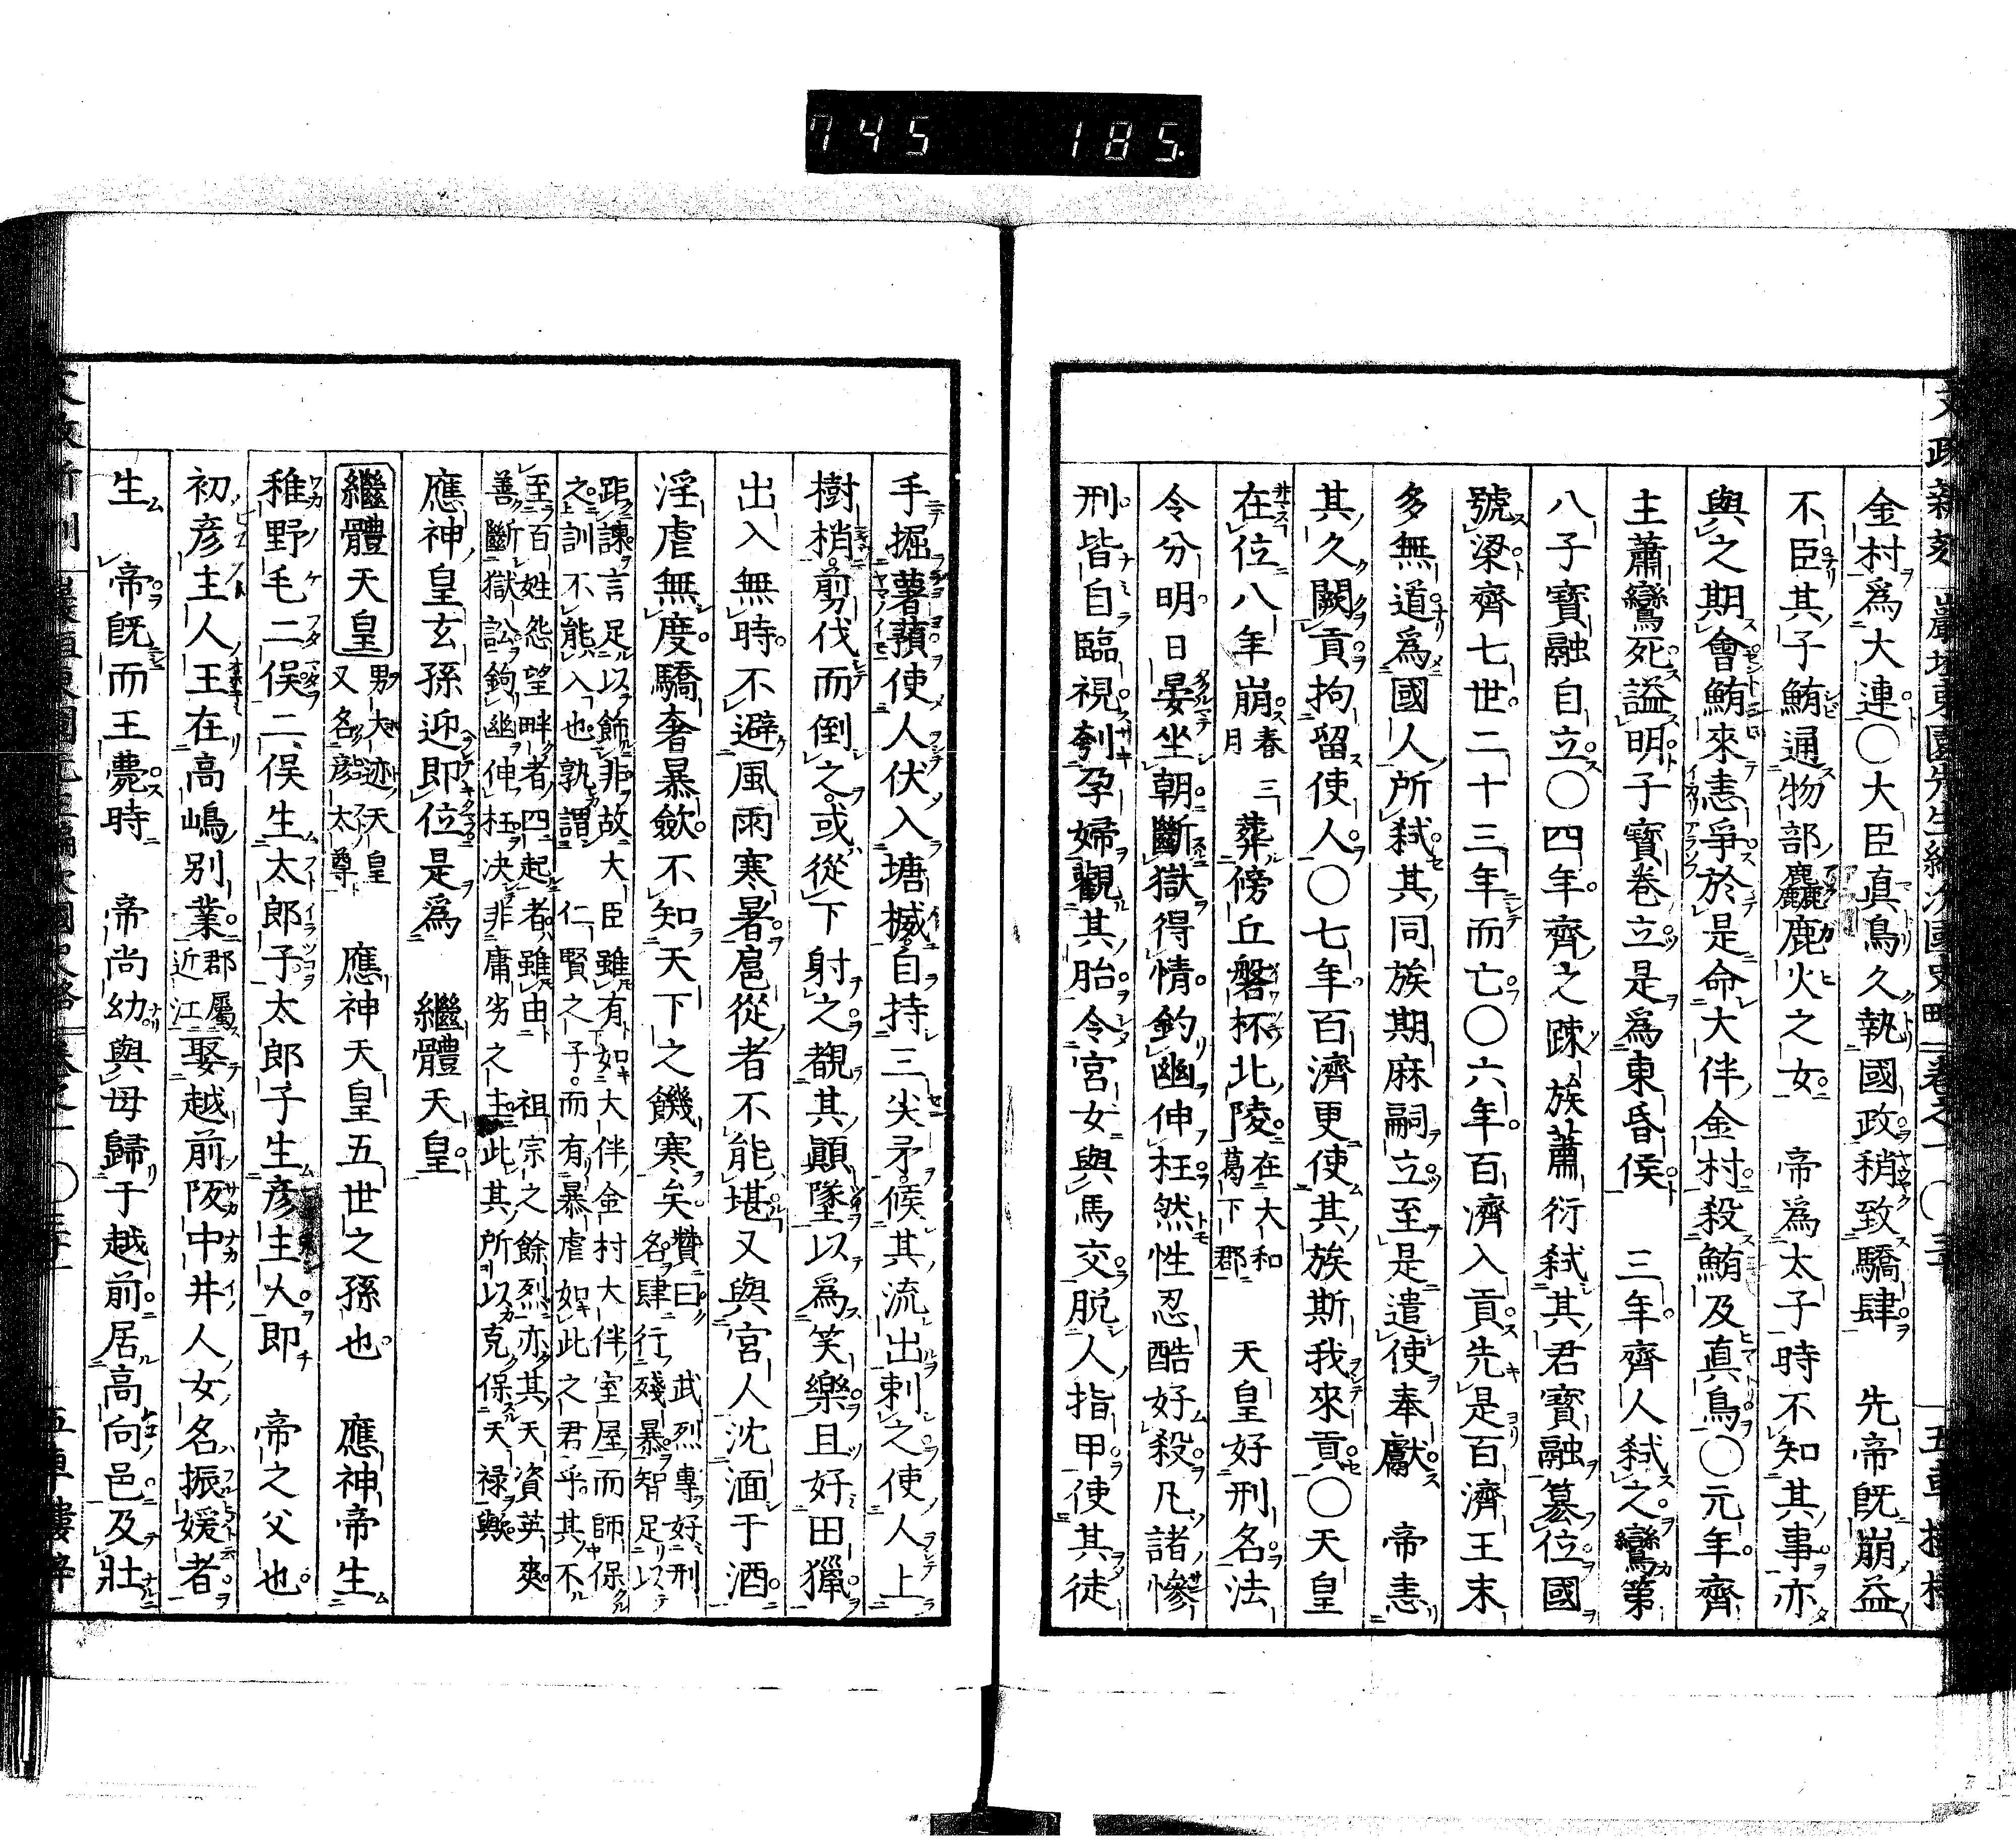 745 185.
金村爲大連○大臣真鳥久執國政稍致驕肆 先帝既崩益
不臣其子鮪通物部麤鹿火之女 帝爲太子時不知其事亦
與之期會鮪來恚爭於是命大伴金村殺鮪及真鳥○元年齊
主蕭鸞死謚明子寶巻立是爲東昏侯 三年齊人弑之鸞第
八子寶融自立○四年齊之疎族蕭衍弑其君寶融簒位國
號梁齊七世二十三年而亡○六年百濟入貢先是百濟王末
多無道爲國人所弑其同族期麻嗣立至是遣使奉獻 帝恚
其久闕貢拘留使人○七年百濟更使其族斯我來貢○天皇
在位八年崩春三月葬傍丘磐杯北陵在大和葛下郡 天皇好刑名法
令分明日晏坐朝斷獄得情釣幽伸枉然性忍酷好殺凡諸慘
刑皆自臨視刳孕婦觀其胎令宮女與馬交脱人指甲使其徒
手掘薯蕷使人伏入塘楲自持三尖矛候其流出刺之使人上
樹梢剪伐而倒之或從下射之覩其顚墜以爲笑樂且好田獵
出入無時不避風雨寒暑扈從者不能堪又與宮人沈湎于酒
淫虐無度驕奢暴斂不知天下之饑寒矣贊曰 武烈專好刑
名肆行殘暴智足以
距諫言足以飾非故大臣雖有如大伴金村大伴室屋而師保
之訓不能入也孰謂 仁賢之子而有暴虐如此之君乎其不
至百姓怨望畔者四起者雖由 祖宗之餘烈亦其天資英爽
善斷獄訟鉤幽伸枉決非庸劣之主此其所以克保天禄歟
應神皇玄孫迎即位是爲 繼體天皇
繼體天皇男大迹天皇又名彦太尊 應神天皇五世之孫也 應神帝生
稚野毛二俣二俣生太郎子太郎子生彦主人即 帝之父也
初彦主人王在高嶋別業郡屬近江娶越前阪中井人女名振媛者
生 帝既而王薨時 帝尚幼與母歸于越前居高向邑及壯